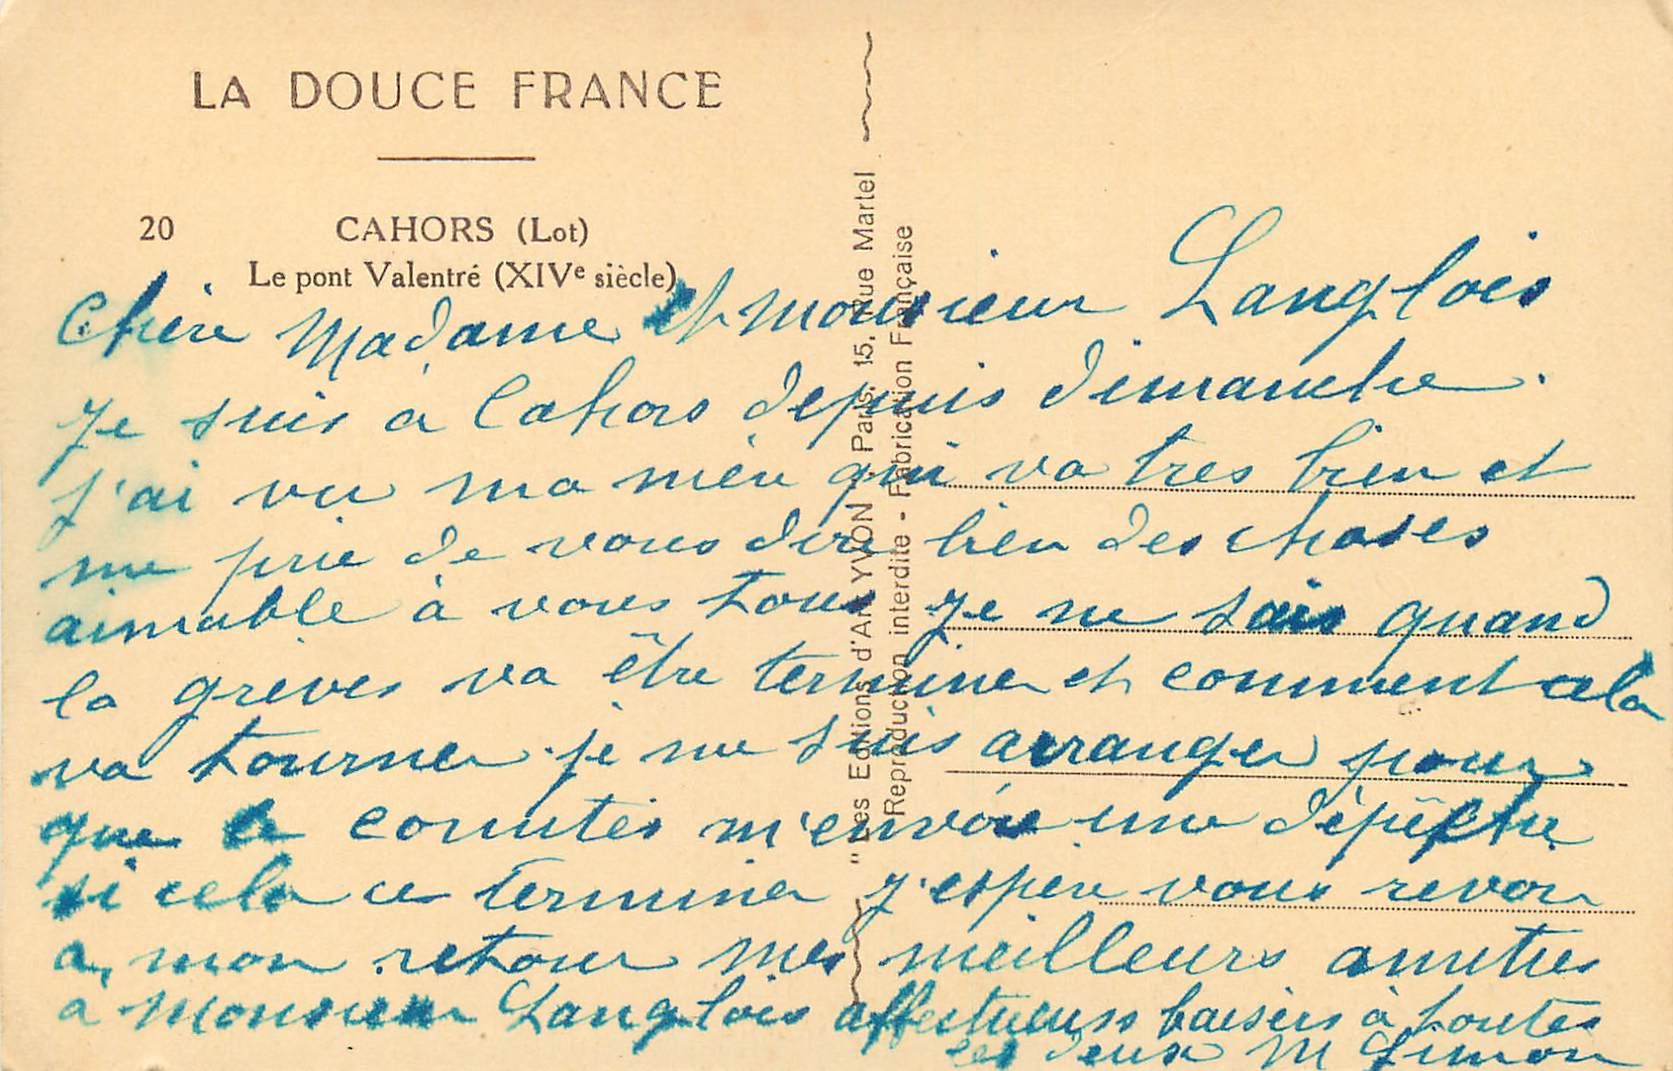 LA DOUCE FRANCE
20 CAHORS (Lot)
Le pont Valentré (XIVe siècle)
"Les Editions d'Art YVON Paris, 15, Rue Martel
Reproduction interdite - Fabrication Française
Chère Madame et monsieur Langlois
Je suis a Cahors depuis dimanche.
J'ai vu ma mère qui va tres bien et
me prie de vous dire bien des choses
aimable à vous tous Je ne sais quand
la grèves va être terminer et comment cela
va tourner je me suis arranger pour
que le comités m'envoie une dépêche
si cela ce terminer J'espère vous revoir
a mon retour mes meilleurs amities
a Monsieur Langlois affectueuss baisers à toutes
les deux M Simon